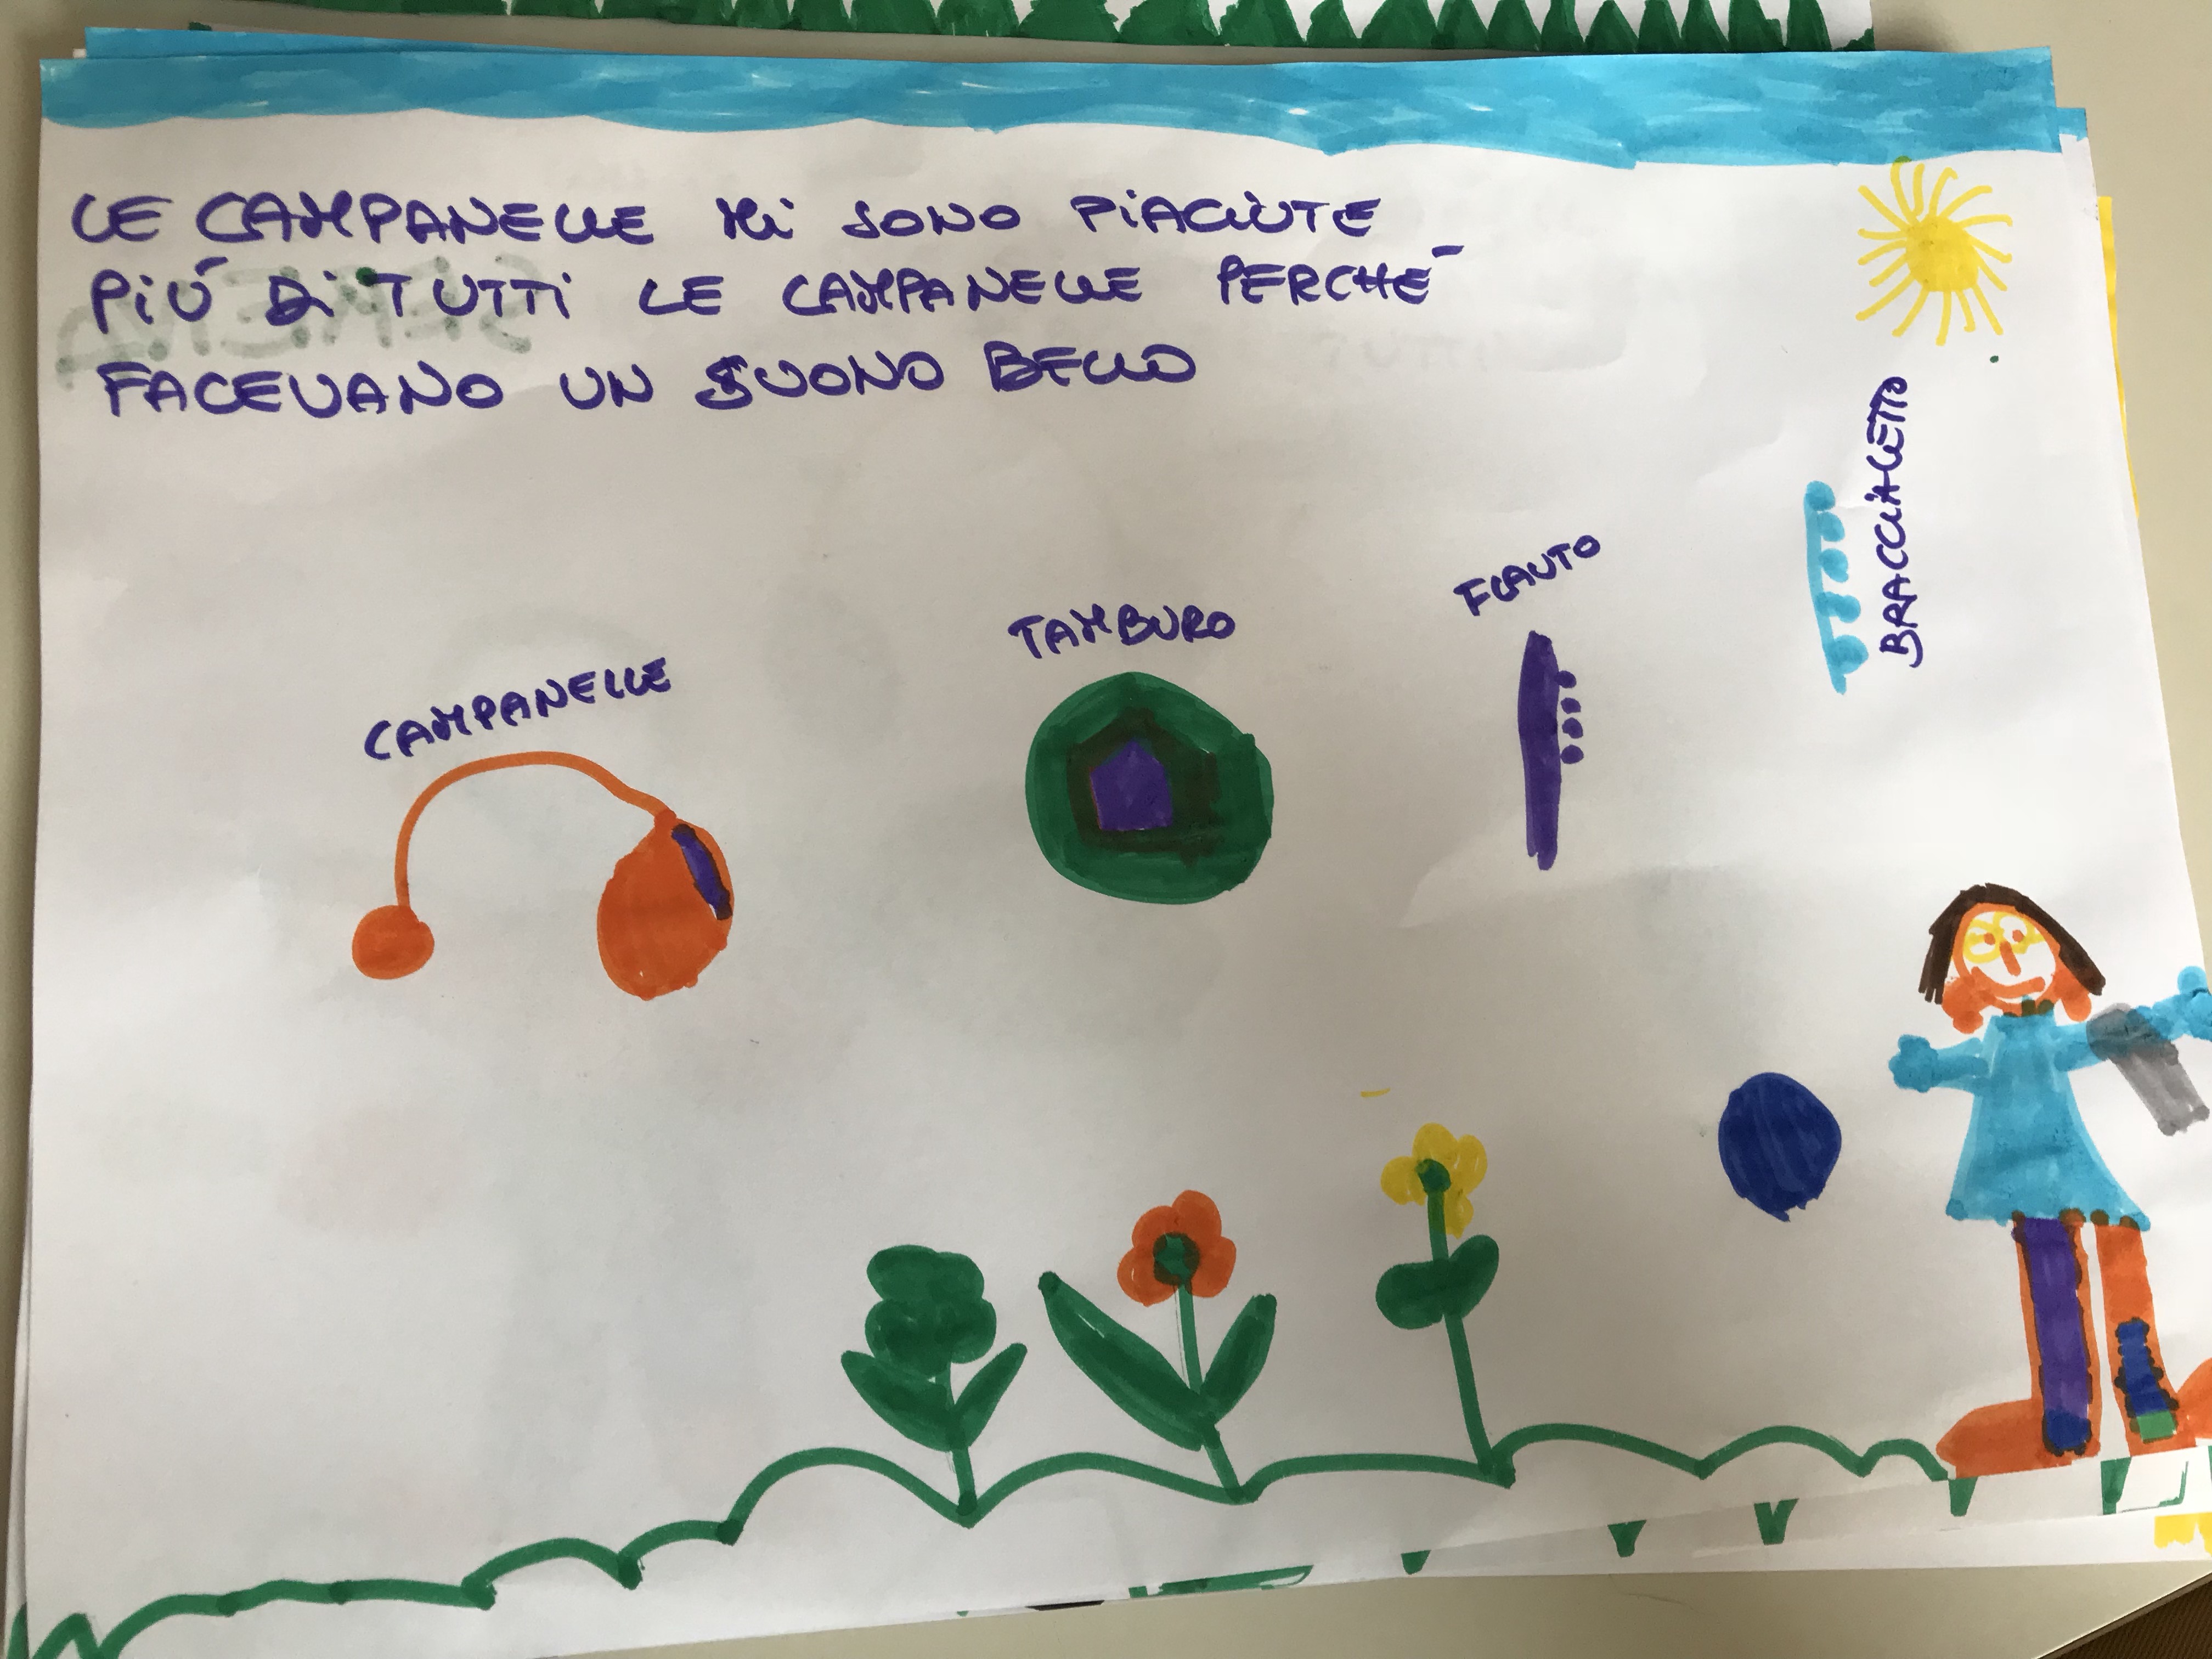 LE CAMPANELLE Mi SONO PiACiUTE
PiÚ Di TUTTi LE CAMPANELLE PERCHÉ
FACEVANO UN SUONO BELLO
CAMPANELLE
TAMBURO
FLAUTO
BRACCIALETTO